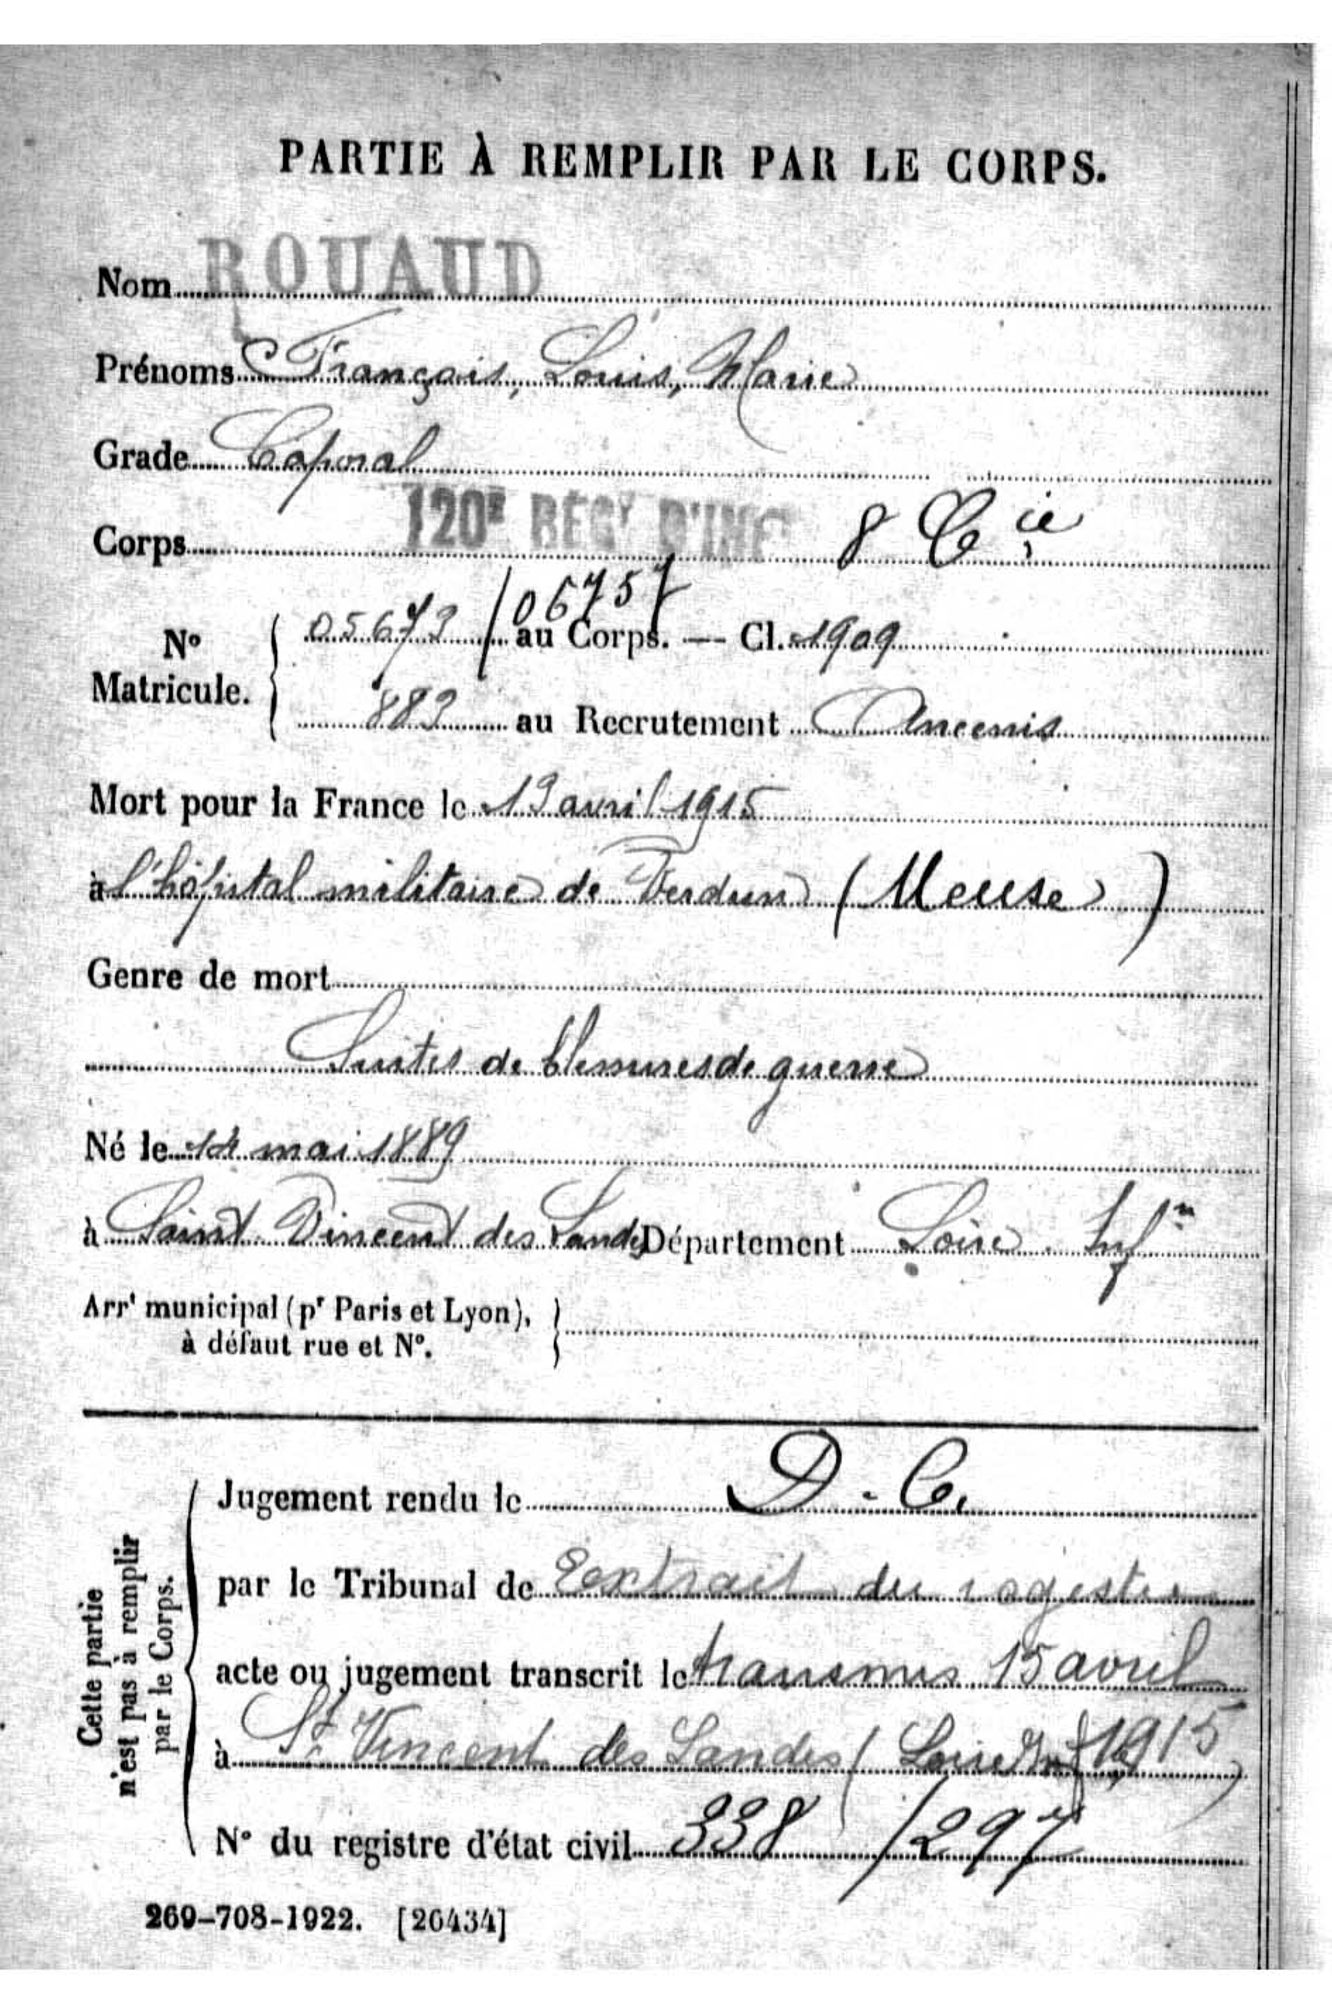 PARTIE À REMPLIR PAR LE CORPS.
Nom ROUAUD
Prénoms François, Louis, Marie
Grade Caporal
Corps 120E RÉGT D'INF 8 Cie
No Matricule. 05673 / 06757 au Corps. — Cl. 1909
883 au Recrutement Ancenis
Mort pour la France le 13 avril 1915
à l'hôpital militaire de Verdun (Meuse)
Genre de mort
Suites de blessures de guerre
Né le 14 mai 1889
à Saint Vincent des Landes Département Loire Infre
Arrt municipal (pr Paris et Lyon),
à défaut rue et No.
Cette partie
n'est pas à remplir
par le Corps.
Jugement rendu le D. C.
par le Tribunal de Extrait du registre
acte ou jugement transcrit le transmis 15 avril
1915
à St Vincent des Landes (Loire Infre)
No du registre d'état civil 338 / 297
269-708-1922. [26434]